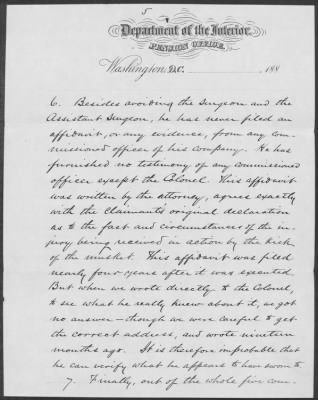 5
Department of the Interior,
PENSION OFFICE,
Washington, D.C. 188
6. Besides avoiding the Surgeon and the
Assistant Surgeon, he has never filed an
affidavit, or any evidence, from any com-
missioned officer of his Company. He has
furnished no testimony of any commissioned
officer except the Colonel. This affidavit
was written by the attorney, agrees exactly
with the claimant's original declaration
as to the fact and circumstances of the in-
jury being received in action by the kick
of the musket. This affidavit was filed
nearly four years after it was executed.
But when we wrote directly to the Colonel,
to see what he really knew about it, we got
no answer – though we were careful to get
the correct address, and wrote nineteen
months ago. It is therefore improbable that
he can verify what he appears to have sworn to.
7. Finally, out of the whole five com-